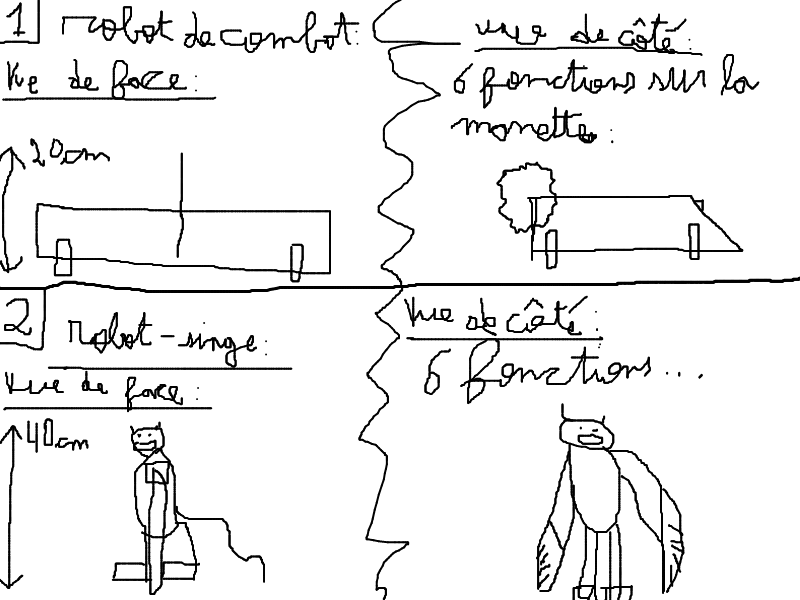 1 robot de combat:
vue de face:
20cm
vue de côté:
6 fonctions sur la
manette:
2 robot-singe:
vue de face:
40cm
vue de côté:
6 fonctions...